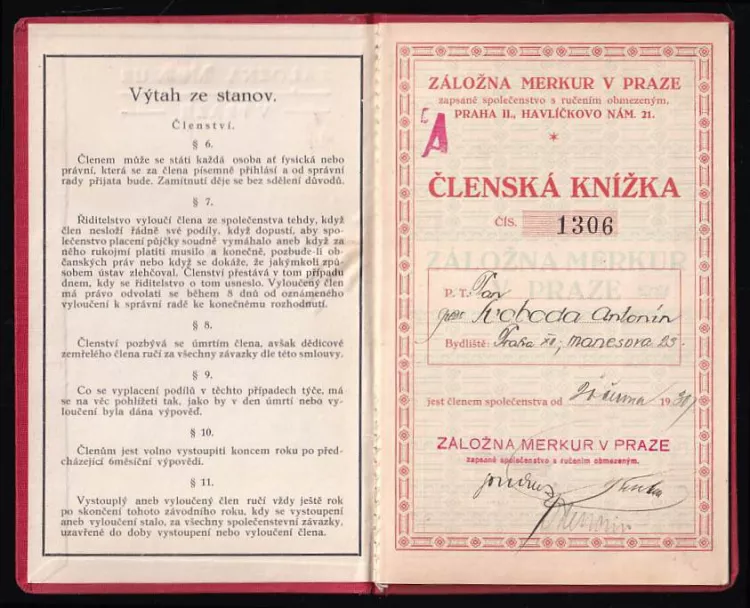 Výtah ze stanov.
Členství.
§ 6.
Členem může se státi každá osoba ať fysická nebo
právní, která se za člena písemně přihlásí a od správní
rady přijata bude. Zamítnutí děje se bez sdělení důvodů.
§ 7.
Ředitelstvo vyloučí člena ze společenstva tehdy, když
člen nesloží řádně své podíly, když dopustí, aby spo-
lečenstvo placení půjčky soudně vymáhalo aneb když za
něho rukojmí platiti musilo a konečně, pozbude-li ob-
čanských práv nebo když se dokáže, že jakýmkoli způ-
sobem ústav zlehčoval. Členství přestává v tom případu
dnem, kdy se ředitelstvo o tom usneslo. Vyloučený člen
má právo odvolati se během 8 dnů od oznámeného
vyloučení k správní radě ke konečnému rozhodnutí.
§ 8.
Členství pozbývá se úmrtím člena, avšak dědicové
zemřelého člena ručí za všechny závazky dle této smlouvy.
§ 9.
Co se vyplacení podílů v těchto případech týče, má
se na věc pohlížeti tak, jako by v den úmrtí nebo vy-
loučení byla dána výpověď.
§ 10.
Členům jest volno vystoupiti koncem roku po před-
cházející 6měsíční výpovědi.
§ 11.
Vystouplý aneb vyloučený člen ručí vždy ještě rok
po skončení tohoto závodního roku, kdy se vystoupení
aneb vyloučení stalo, za všechny společenstevní závazky,
uzavřené do doby vystoupení nebo vyloučení člena.
ZÁLOŽNA MERKUR V PRAZE
zapsané společenstvo s ručením obmezeným.
PRAHA II., HAVLÍČKOVO NÁM. 21.
A
ČLENSKÁ KNÍŽKA
ČÍS. 1306
ZÁLOŽNA MERKUR
V PRAZE
P. T.: Pan
Svoboda Antonín
Bydliště: Praha XII; Manesova 23.
jest členem společenstva od 20 června 1939
ZÁLOŽNA MERKUR V PRAZE
zapsané společenstvo s ručením obmezeným.